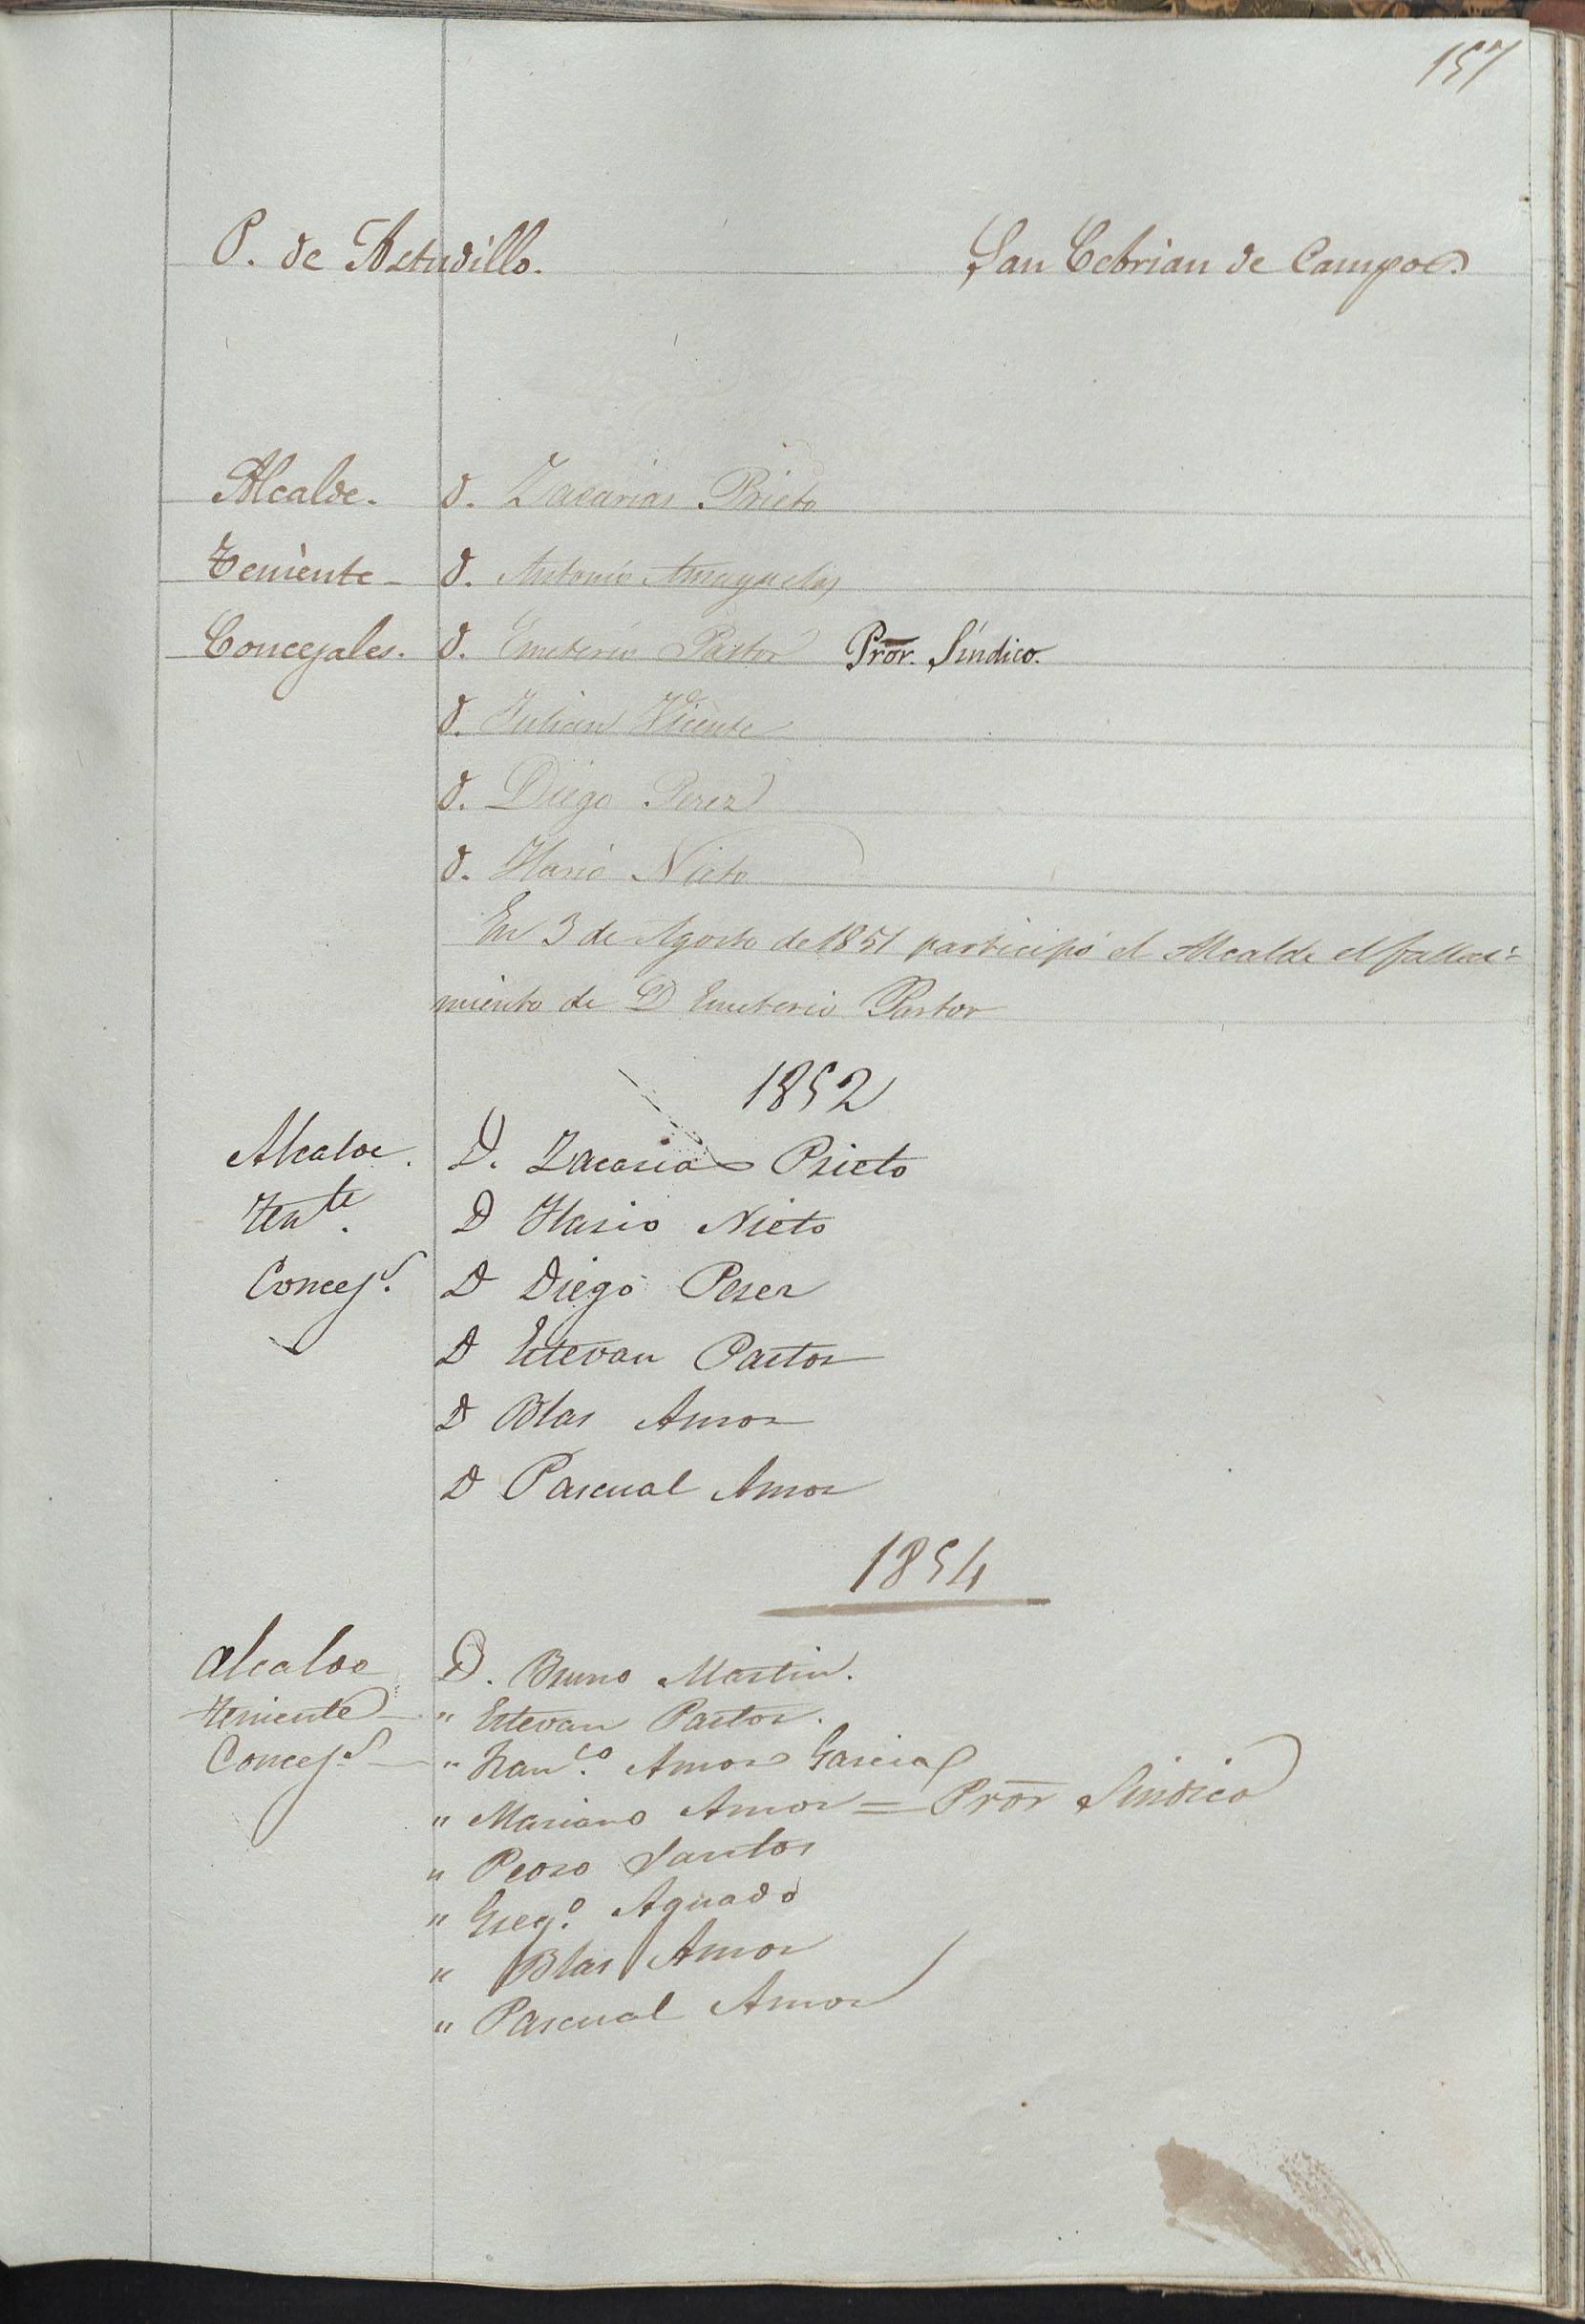 157
P. de Astudillo. San Cebrian de Campos.
Alcalde. D. Zacarias Prieto
Teniente - D. Antonio Amayuelas
Concejales. D. Emeterio Pastor Pror. Síndico.
D. Julian Vicente
D. Diego Perez
D. Ylario Nieto
En 3 de Agosto de 1851 participó el Alcalde el falleci-
miento de D Emeterio Pastor
1852
Alcalde. D. Zacarias Prieto
Tente. D Ylario Nieto
Concejs. D Diego Perez
D Estevan Pastor
D Blas Amor
D Pascual Amor
1854
Alcalde D. Bruno Martin.
Teniente - " Estevan Pastor.
Concejs. - " Franco. Amor Garcia
" Mariano Amor = Pror Sindico
" Pedro Santos
" Grego. Aguado
" Blas Amor
" Pascual Amor